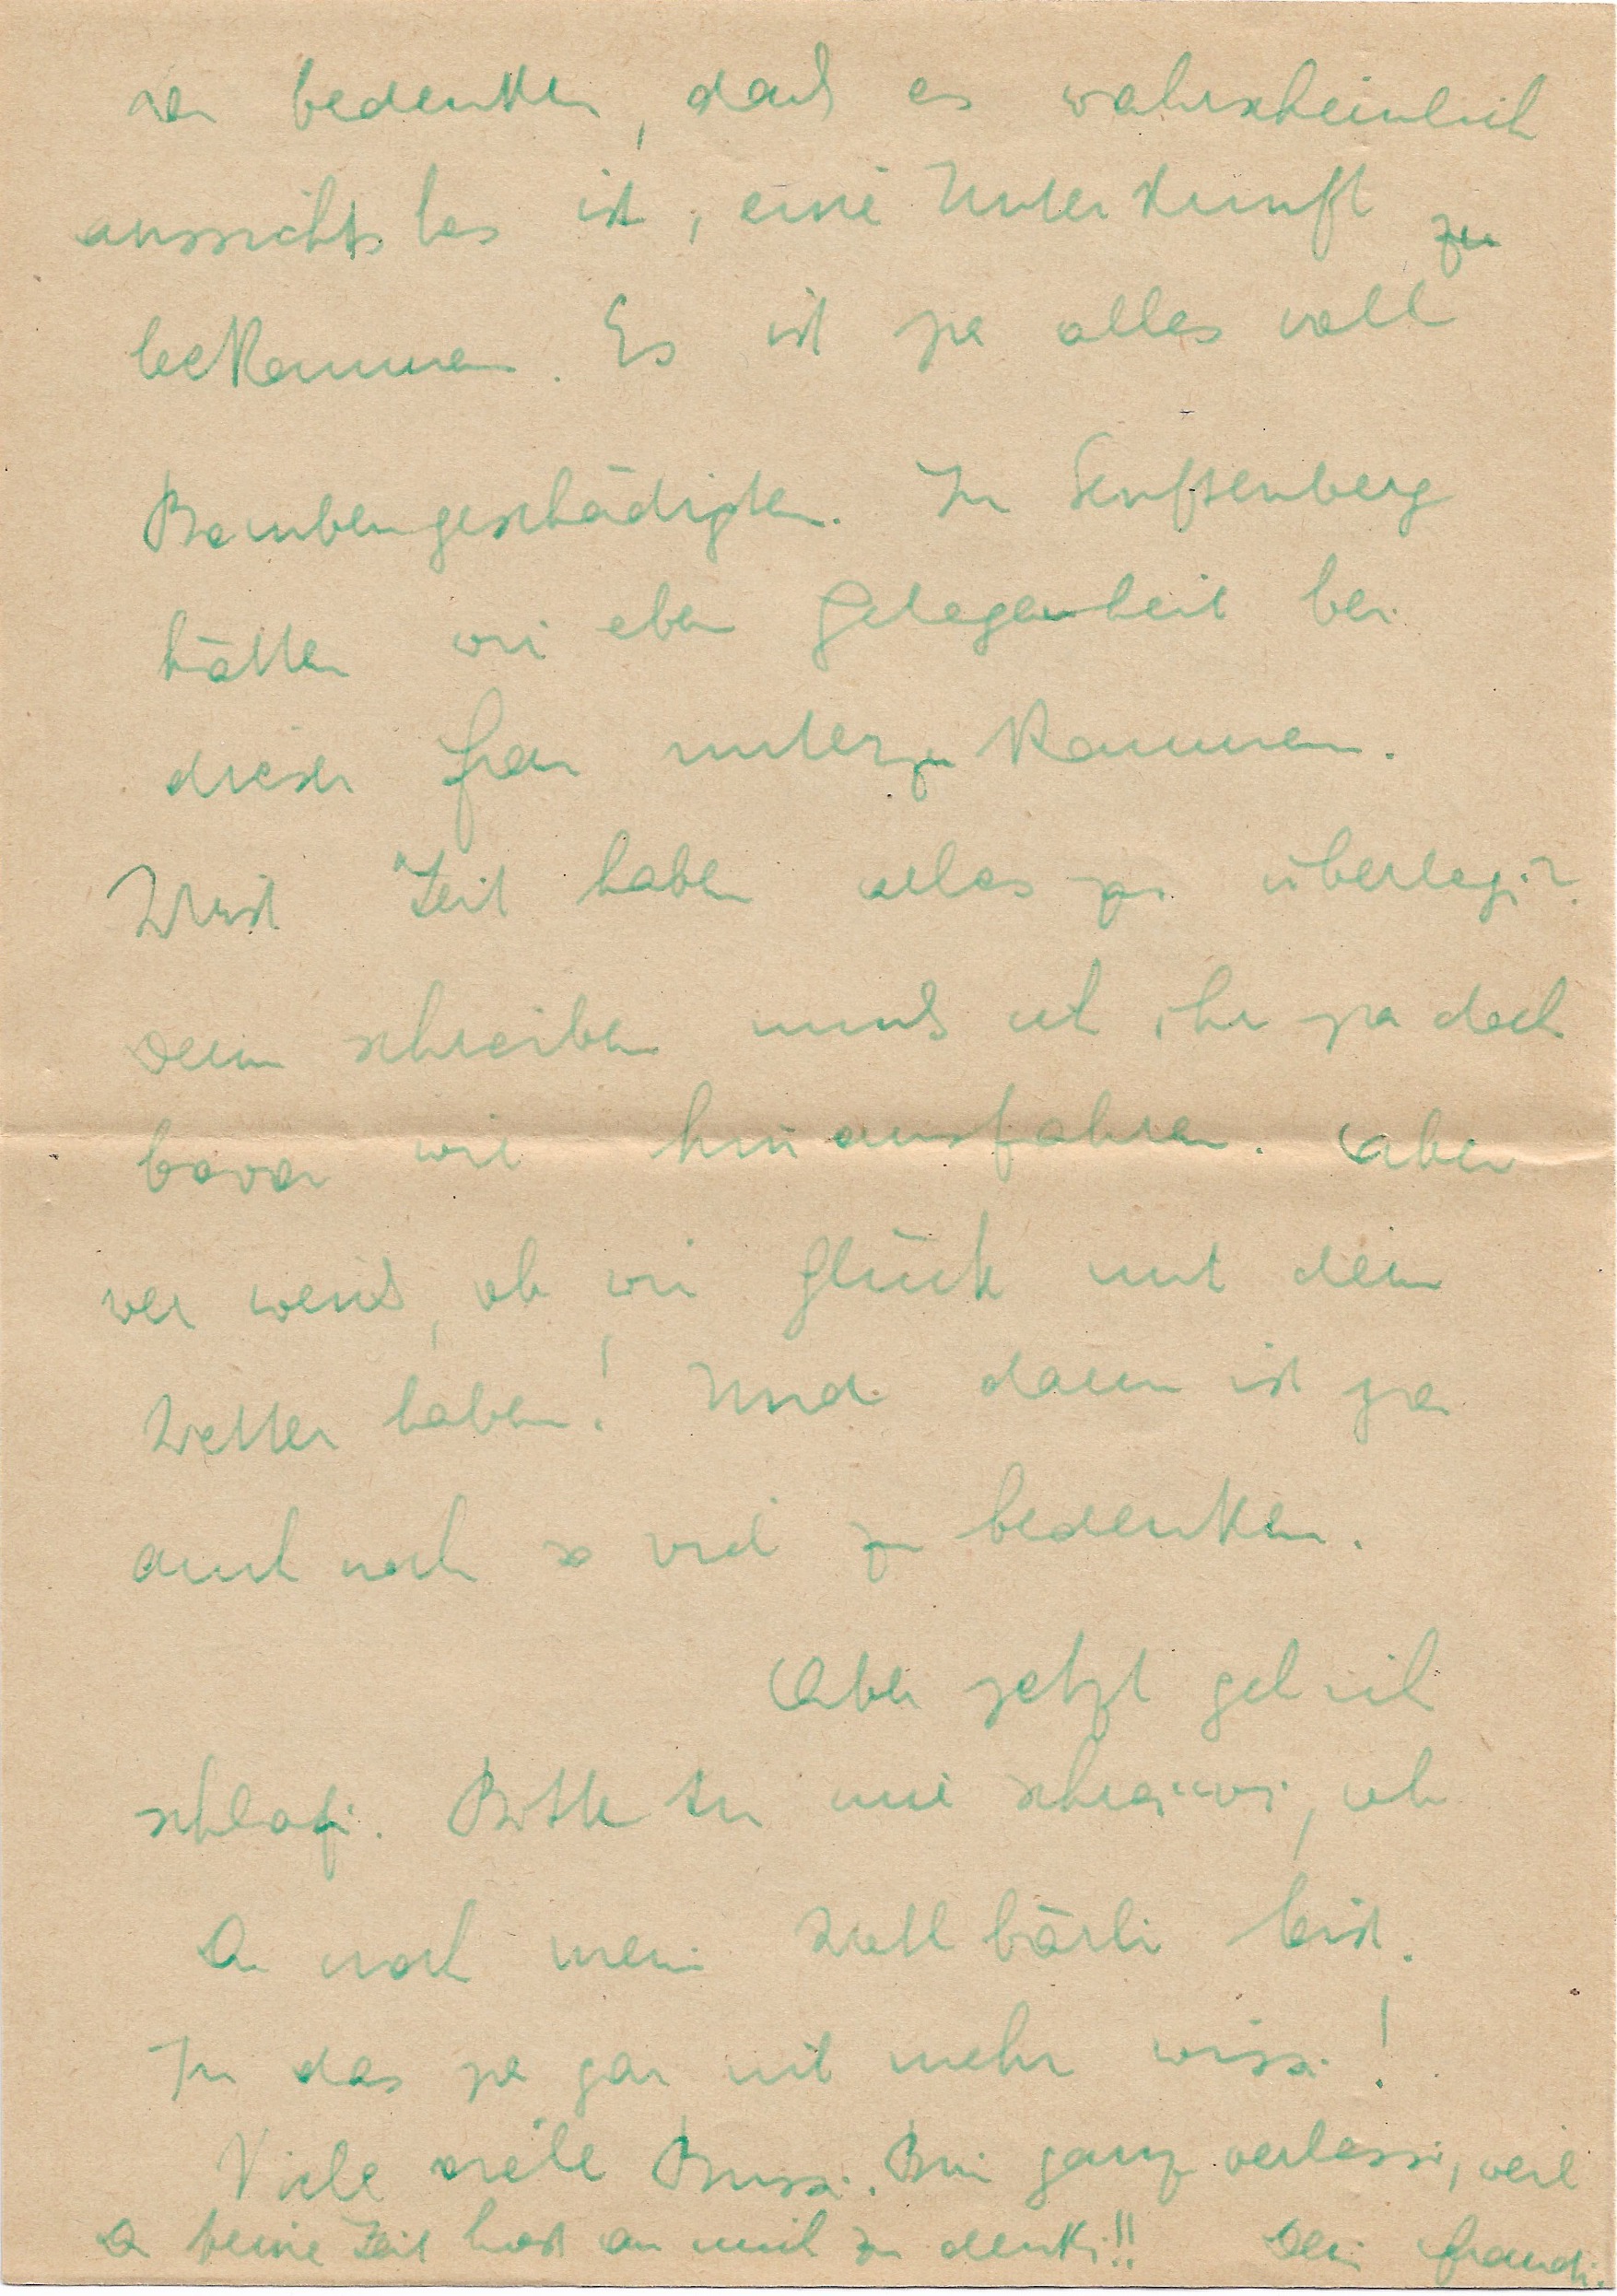 zu bedenken, daß es wahrscheinlich
aussichtslos ist, eine Unterkunft zu
bekommen. Es ist ja alles voll
Bombengeschädigten. In Senftenberg
hätten wir eben Gelegenheit bei
dieser Frau unterzukommen.
Wirst Zeit haben alles zu überlegi?
Denn schreiben muß ich ihr ja doch
bevor wir hinausfahren. Aber
wer weiß, ob wir Glück mit dem
Wetter haben! Und dann ist ja
auch noch so viel zu bedenken.
Aber jetzt geh ich
schlafi. Bitte tu mir, ob
Du noch mein Wollbärli bist.
Tu das ja gar nit mehr wissi!
Viele viele Bussi. Bin ganz verlassi, weil
Du keine Zeit hast an mich zu denki!! Dein